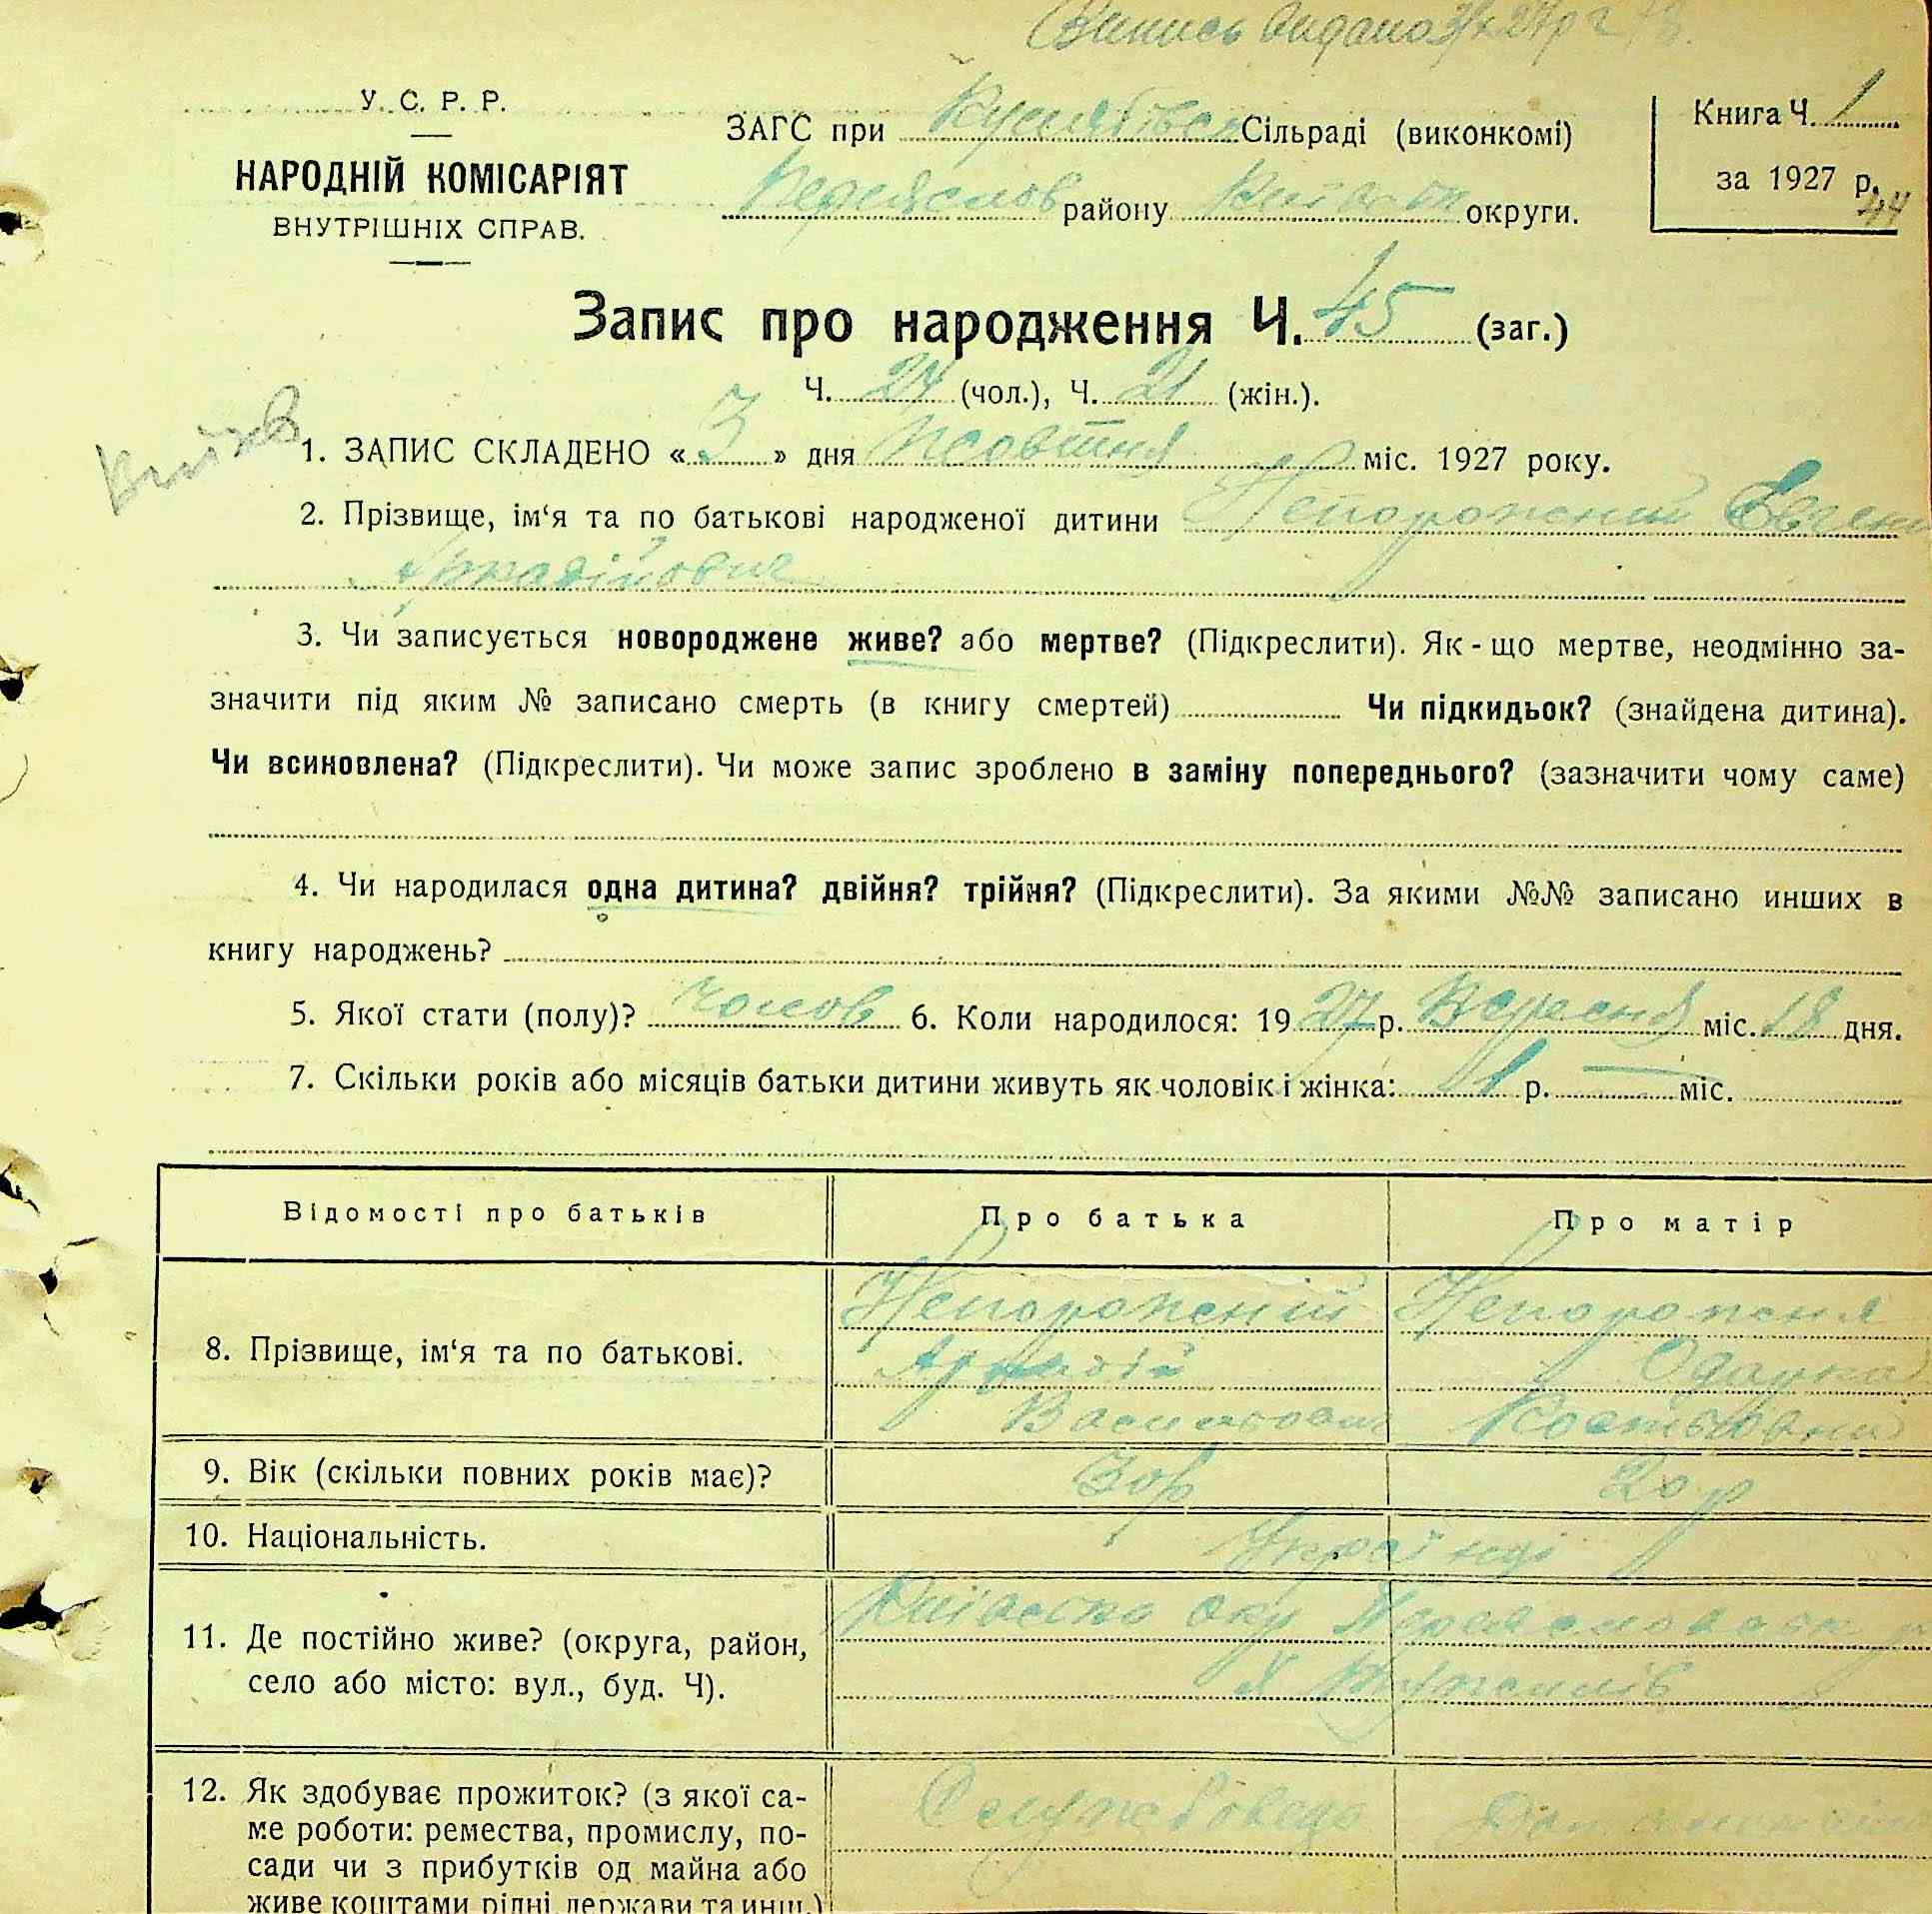 У. С. Р. Р.
НАРОДНІЙ КОМІСАРІЯТ
ВНУТРІШНІХ СПРАВ.
ЗАГС при Сільраді (виконкомі)
Переяслов району округи.
Книга Ч. 1
за 1927 р.
44
Запис про народження Ч. 45 (заг.)
Ч. 24 (чол.), Ч. 21 (жін.).
1. ЗАПИС СКЛАДЕНО « 3 » дня Жовтня міс. 1927 року.
2. Прізвище, ім‘я та по батькові народженої дитини Непорожній
Аркадійович
3. Чи записується новороджене живе? або мертве? (Підкреслити). Як - що мертве, неодмінно за-
значити під яким № записано смерть (в книгу смертей) Чи підкидьок? (знайдена дитина).
Чи всиновлена? (Підкреслити). Чи може запис зроблено в заміну попереднього? (зазначити чому саме)
4. Чи народилася одна дитина? двійня? трійня? (Підкреслити). За якими №№ записано инших в
книгу народжень?
5. Якої стати (полу)? Чолов 6. Коли народилося: 19 27 р. Вересня міс. 18 дня.
7. Скільки років або місяців батьки дитини живуть як чоловік і жінка: 1 р. — міс.
Відомості про батьків Про батька Про матір
8. Прізвище, ім‘я та по батькові. Непорожній Непорожня
Аркадій Одарка
Васильович
9. Вік (скільки повних років має)? 30 р 20 р
10. Національність. Українці
11. Де постійно живе? (округа, район,
село або місто: вул., буд. Ч).
Київсько окр Переясловськ р
12. Як здобуває прожиток? (з якої са-
ме роботи: ремества, промислу, по-
сади чи з прибутків од майна або
живе коштами рідні, держави та инш.)
Службовець